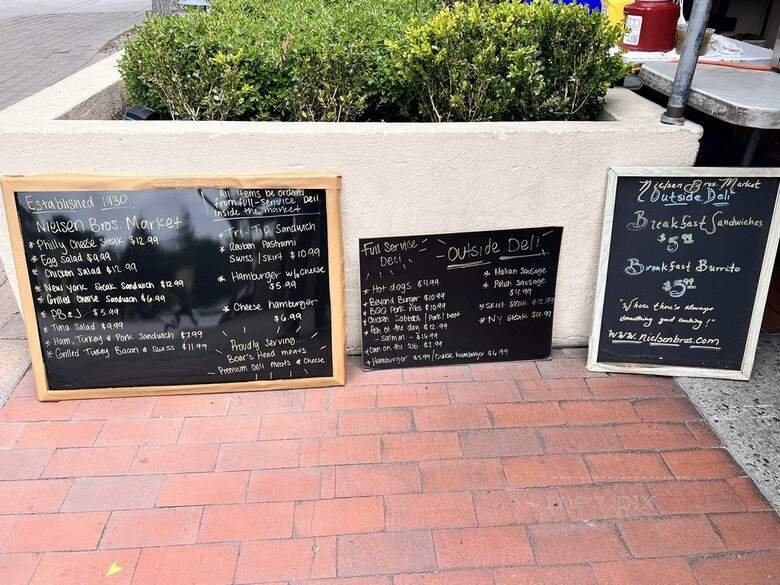 Established 1930
Nielsen Bros. Market
* Philly Cheese Steak $12.99
* Egg Salad $9.99
* Chicken Salad $12.99
* New York Steak Sandwich $12.99
* Grilled Cheese Sandwich $6.99
* PB & J $5.99
* Tuna Salad $9.99
* Ham, Turkey & Pork Sandwich $7.99
* Grilled Turkey Bacon & Swiss $11.99
All items be ordered
from full-service Deli
inside the market
* Tri-Tip Sandwich
* Reuben Pastrami
Swiss/
$10.99
* Hamburger w/cheese
$5.99
* Cheese hamburger
$6.99
Proudly Serving
Boar's Head meats
Premium Deli Meats & Cheese
Full Service
Deli
Outside Deli
* Hot dogs $4.99
* Beyond Burger $10.99
* BBQ Pork Ribs $10.99
* Chicken Kabobs / Pork / beef
* Fish of the day $12.99
- Salmon -
* Corn on the cob $2.99
* Hamburger $5.99 / Cheese hamburger $6.99
* Italian Sausage
* Polish Sausage
$12.99
* Skirt Steak $12.99
* NY Steak
Nielsen Bros Market
Outside Deli
Breakfast Sandwiches
$5.99
Breakfast Burrito
$5.99
"Where there's always
something good cooking!"
www.nielsenbros.com
menupix